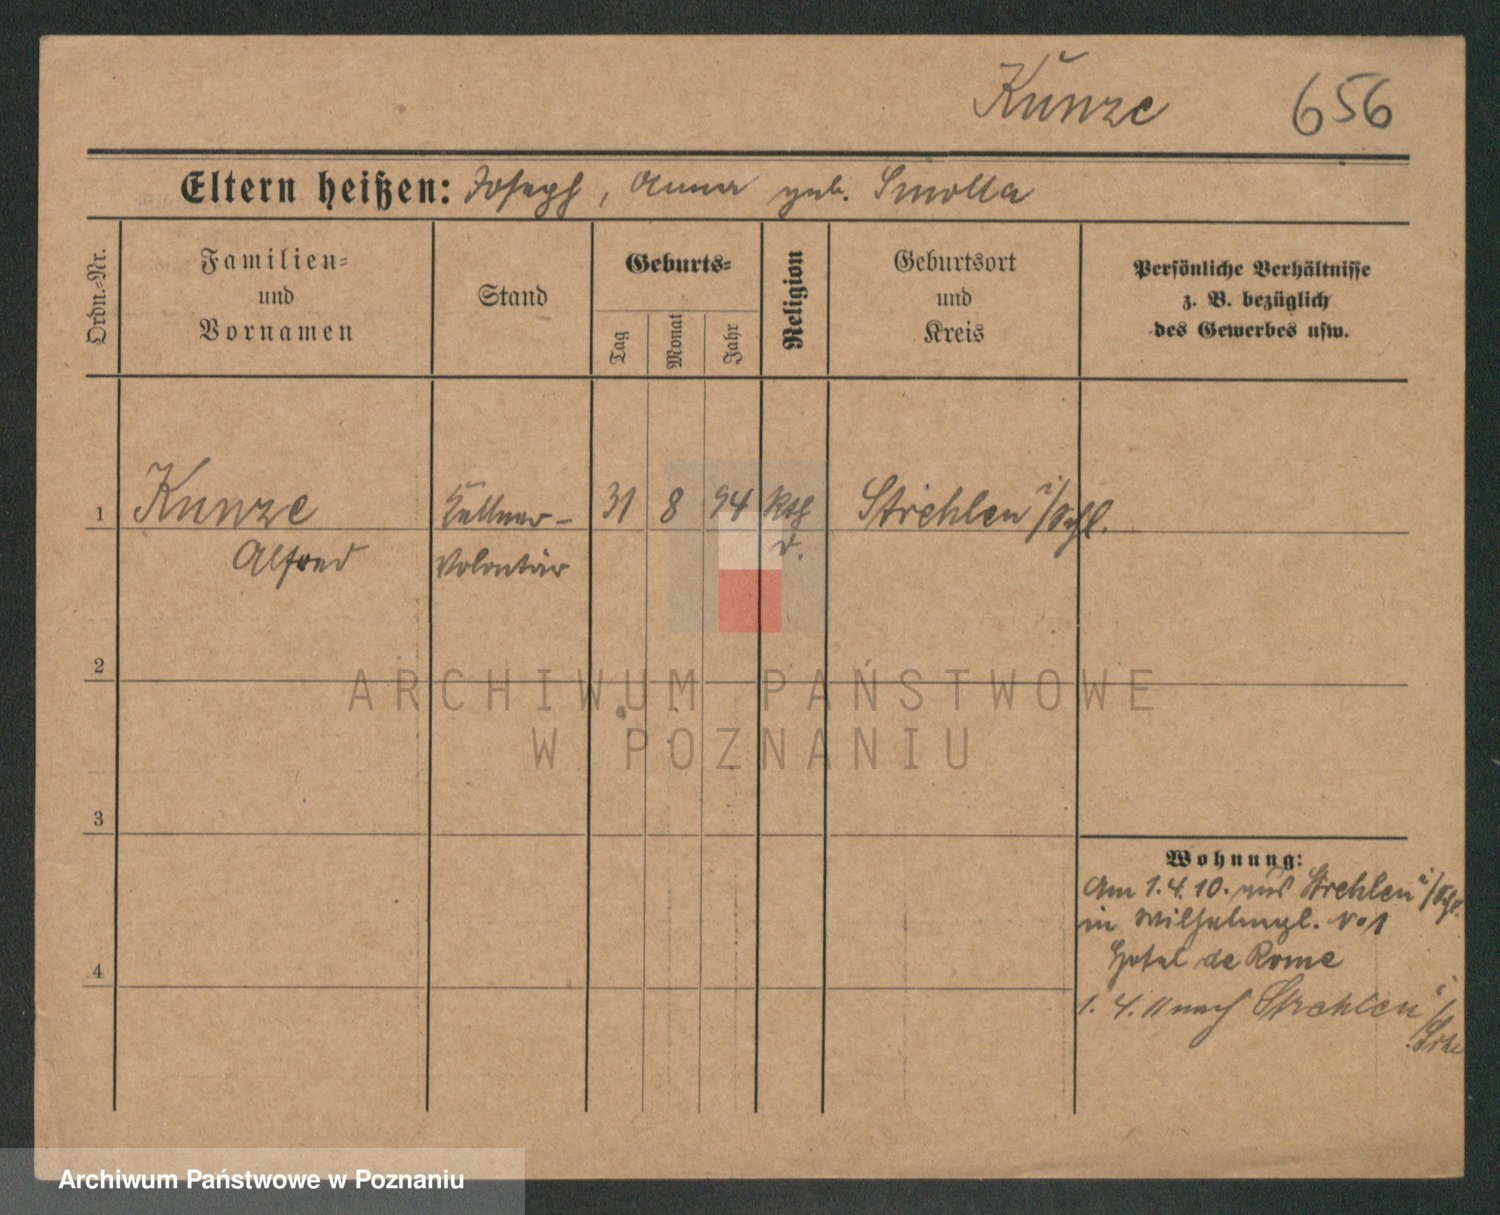 Kunze 656
Eltern heißen: Joseph, Anna geb. Smolla
Ordn.-Nr.
Familien-
und
Vornamen
Stand
Geburts-
Tag
Monat
Jahr
Religion
Geburtsort
und
Kreis
Persönliche Verhältnisse
z. B. bezüglich
des Gewerbes usw.
1 Kunze Kellner- 31 8 94 kth Strehlen i/Schl.
Alfred Volontär v.
2
ARCHIWUM PAŃSTWOWE
W POZNANIU
3
Wohnung:
Am 1.4.10. aus Strehlen i/Schl.
in Wilhelmpl. No 1
Hotel de Rome
4
1. 4. 11 nach Strehlen i/
Archiwum Państwowe w Poznaniu